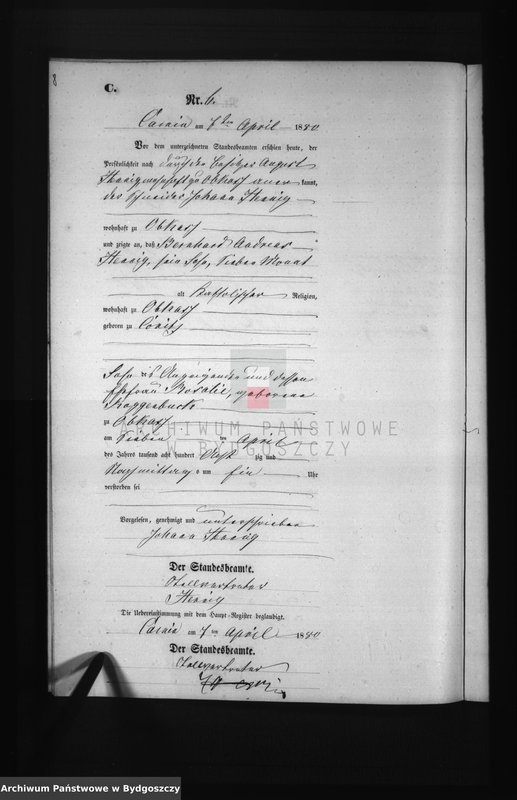 8
C.
Nr. 6.
am 7ten April 1880
Vor dem unterzeichneten Standesbeamten erschien heute, der
Persönlichkeit nach durch den Besitzer August
zu Obkass aner kannt,
der Schneider Johann
wohnhaft zu Obkass
und zeigte an, daß Bernhard Andreas
sein Sohn, sieben Monat
alt katholischer Religion,
wohnhaft zu Obkass
geboren zu
Sohn des Anzeigenden und dessen
Ehefrau Rosalie, geborene
Roggenbuck
zu Obkass
am sieben ten April
des Jahres tausend acht hundert acht zig und
Nachmittag s um ein Uhr
verstorben sei
Vorgelesen, genehmigt und unterschrieben
Johann
Der Standesbeamte.
Stellvertreter
Die Uebereinstimmung mit dem Haupt-Register beglaubigt.
am 7ten April 1880
Der Standesbeamte.
Stellvertreter
ARCHIWUM PAŃSTWOWE
W BYDGOSZCZY
Archiwum Państwowe w Bydgoszczy